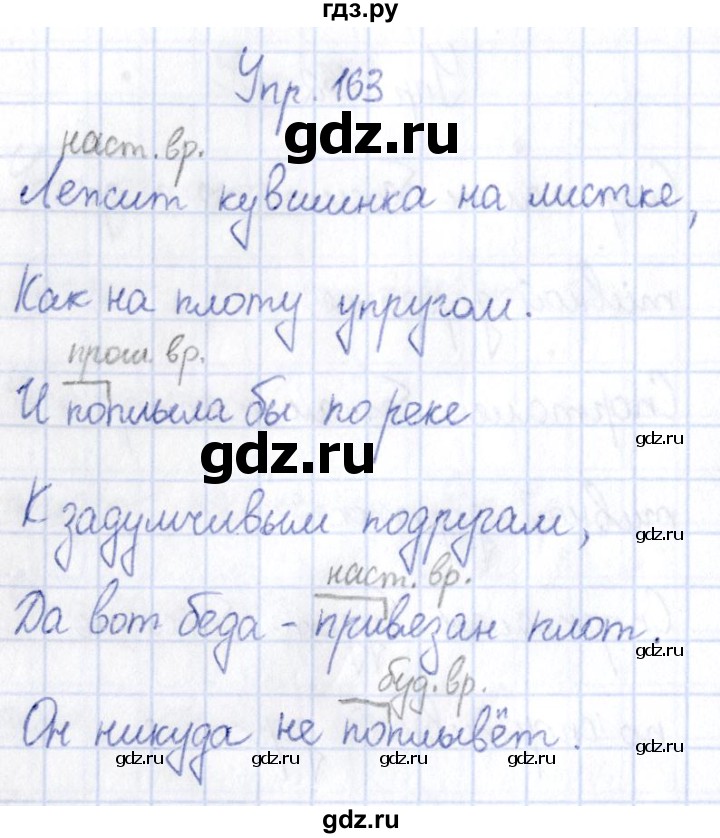 гдз.ру
Упр. 163
gdz.ru
наст. вр.
Лежит кувшинка на листке,
Как на плоту упругом.
прош. вр.
И поплыла бы по реке
gdz.ru
gdz.ru
К задумчивым подругам,
gdz.ru
наст. вр.
Да вот беда - привязан плот.
gdz.ru
буд. вр.
Он никуда не поплывёт.
gdz.ru gdz.ru gdz.ru gdz.ru
gdz.ru